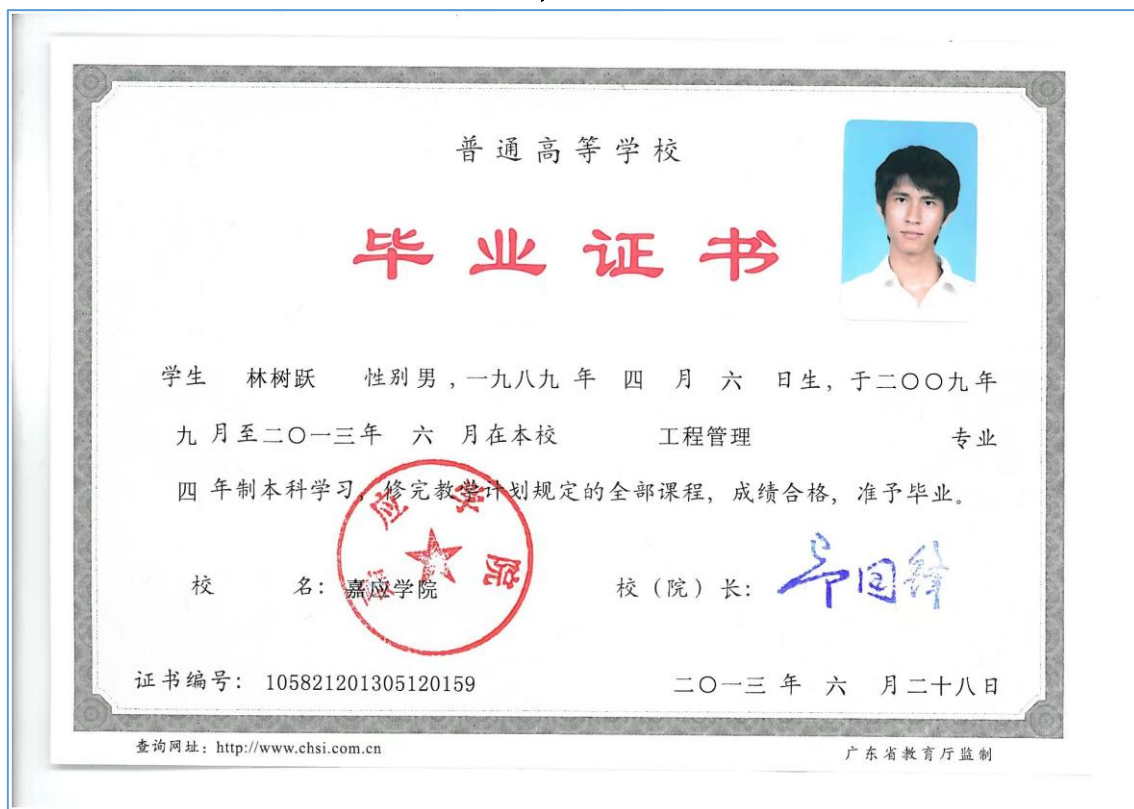 普通高等学校
毕业证书
学生 林树跃 性别男,一九八九年 四 月 六 日生,于二〇〇九年
九月至二〇一三年 六 月在本校 工程管理 专业
四年制本科学习,修完教学计划规定的全部课程,成绩合格,准予毕业。
校 名:嘉应学院 校(院)长:
嘉应学院
证书编号:105821201305120159 二〇一三年 六 月二十八日
查询网址:http://www.chsi.com.cn 广东省教育厅监制